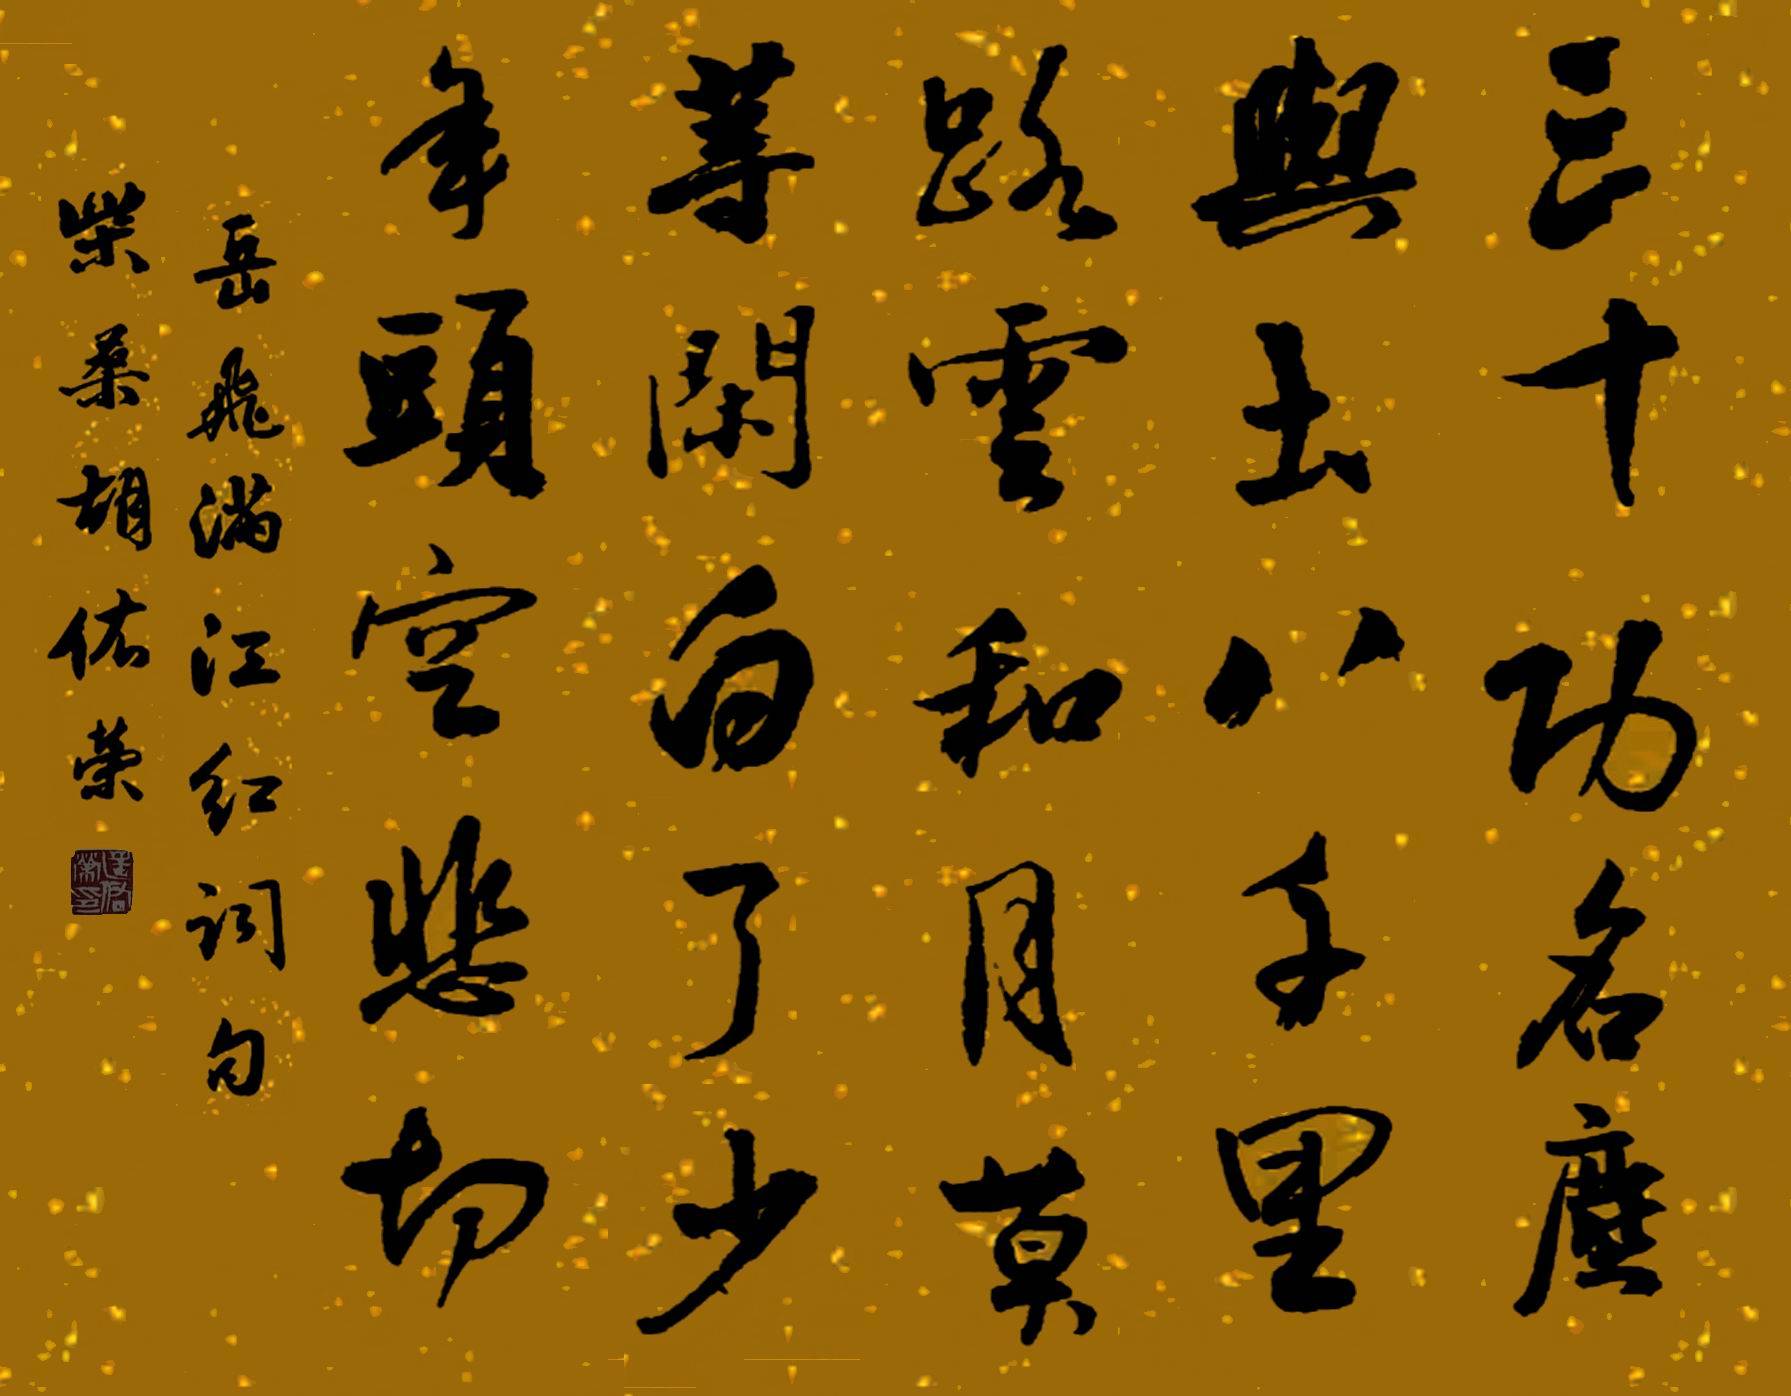 三十功名塵
與土八千里
路雲和月莫
等閑白了少
年頭空悲切
岳飛滿江红词句
柴桑胡佑荣